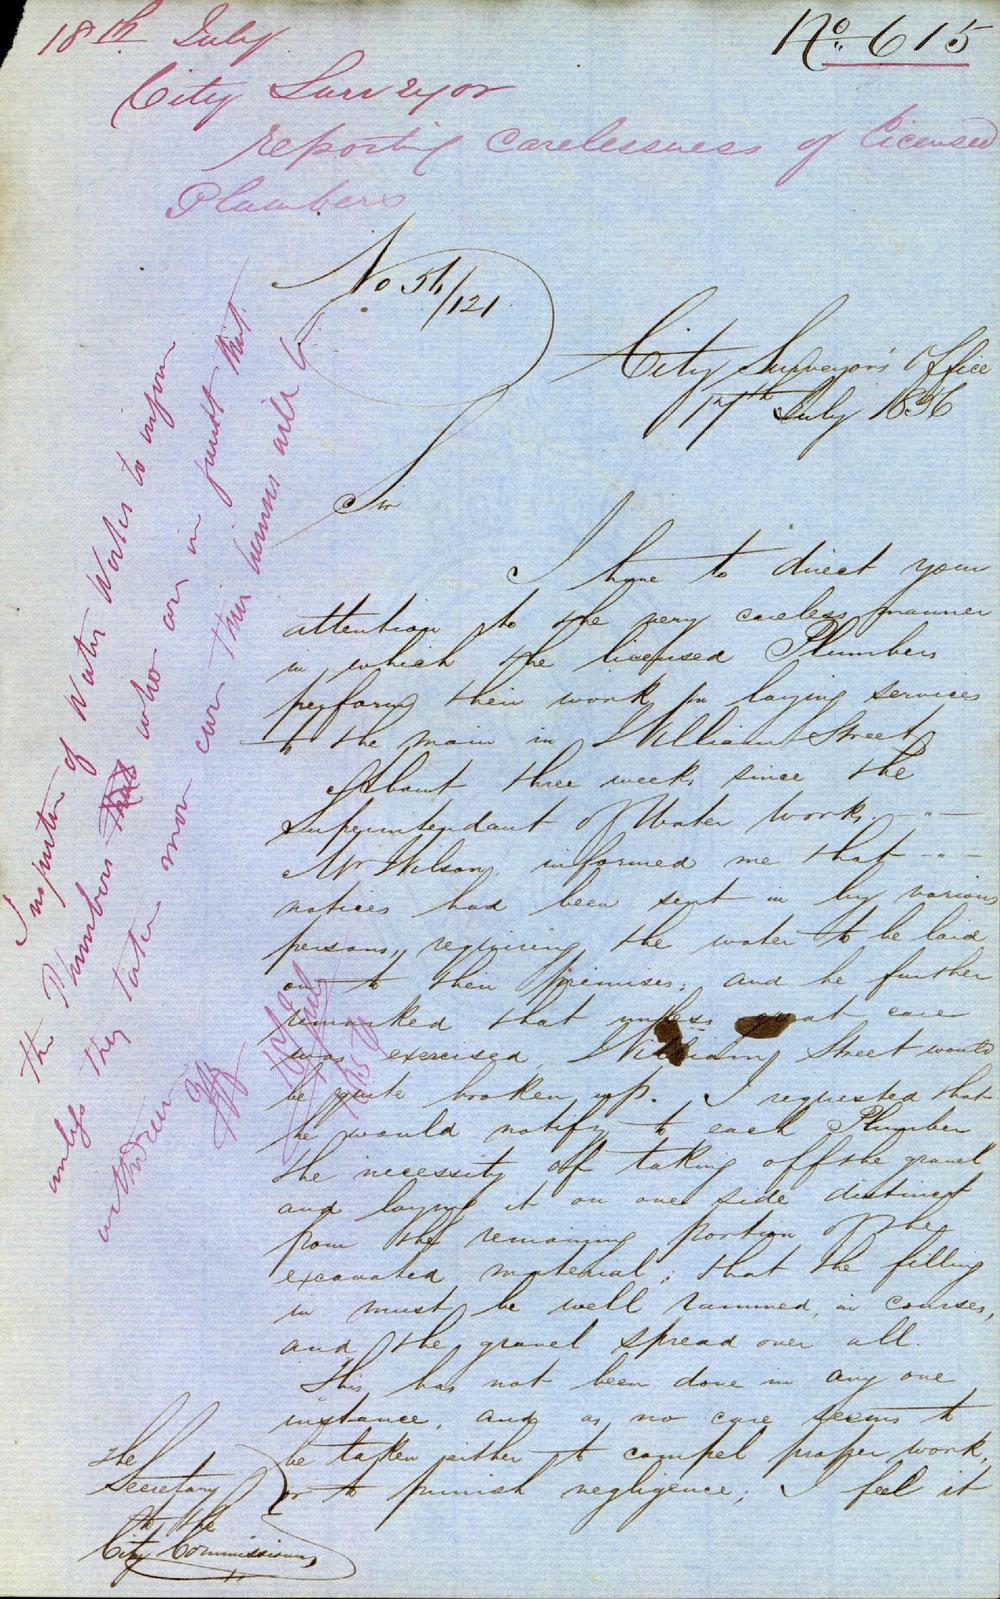 18th July
No 615
City Surveyor
reporting carelessness of licensed
Plumbers
No 56/121
City Surveyor's Office
17th July 1856
Sir
I have to direct your
attention to the very careless manner
in which the licensed Plumbers
perform their work in laying services
to the main in William Street
About three weeks since the
Superintendant of Water Works
Mr Wilson informed me that
notices had been sent in by various
persons, requiring the water to be laid
on to their premises; and he further
remarked that unless great care
was exercised, William Street would
be quite broken up. I requested that
he would notify to each Plumber
the necessity of taking off the gravel
and laying it on one side distinct
from the remaining portion of the
excavated material; that the filling
in must be well rammed, in courses,
and the gravel spread over all.
This has not been done in any one
instance, and as no care seems to
be taken either to compel proper work,
or to punish negligence; I feel it
The
Secretary
to the
City Commissioners
Inspector of Water Works to inform
the Plumbers that who are in fault that
unless they take more care their licenses will be
withdrawn